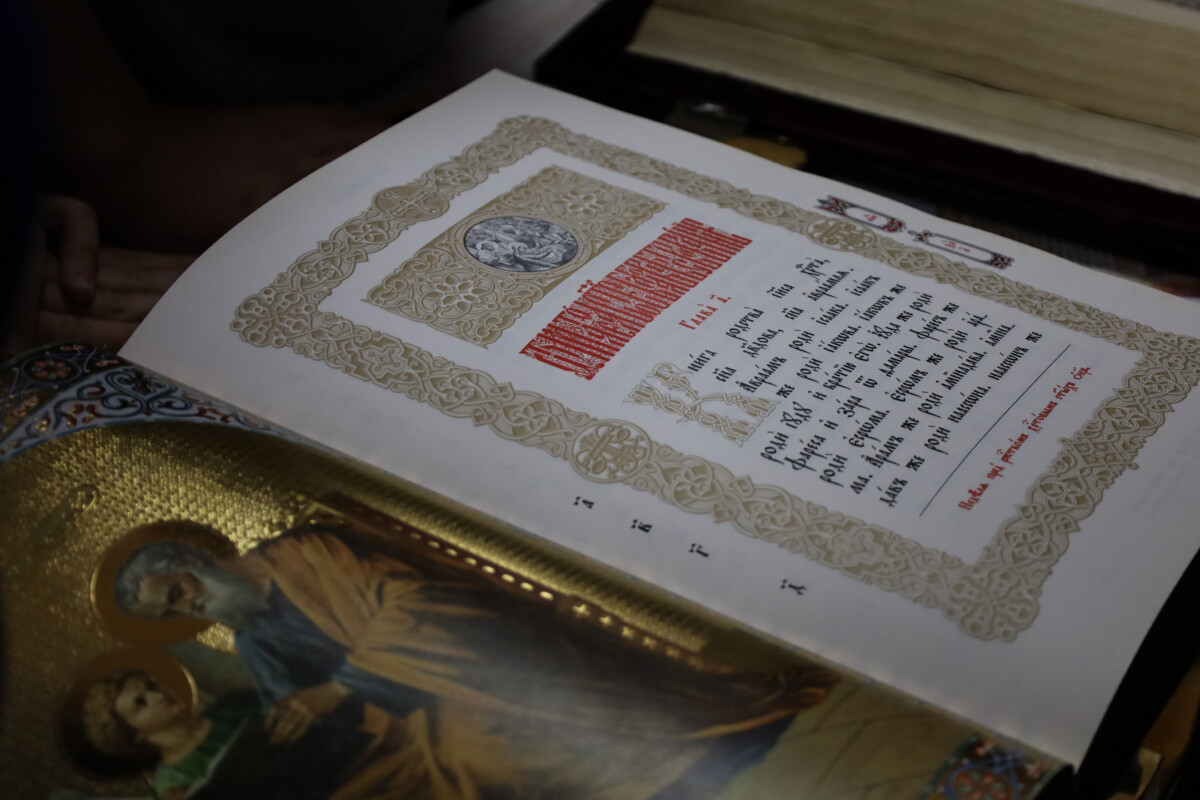 Глава̀ а҃.
Кни́га родства̀ і҆и҃са хр҃та̀,
сн҃а дв҃дова, сн҃а а҆враа́млѧ.
А҆враа́мъ родѝ і҆саа́ка. і҆саа́къ
же родѝ і҆а́кѡва. і҆а́кѡвъ же
родѝ і҆ꙋ́дꙋ и҆ бра́тїю є҆гѡ̀. і҆ꙋ́да же родѝ
фаре́са и҆ за́ра ѿ ѳама́ры. фаре́съ же
родѝ є҆срѡ́ма. є҆срѡ́мъ же родѝ а҆ра́-
ма. А҆ра́мъ же родѝ а҆мїнада́ва. а҆мїна-
да́въ же родѝ наассѡ́на. наассѡ́нъ же
Недѣ́лѧ пре́д̾ рж҃тво́мъ хр҃то́вымъ ст҃ы́хъ ѻ҆ц҃ъ.
а҃
в҃
г҃
д҃